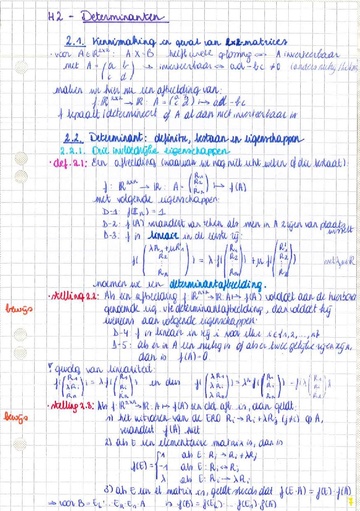 H2 - Determinanten
2.1. Kennismaking en geval van 2x2-matrices
voor A ∈ R²ˣ² : A·X = B heeft unieke oplossing ⇔ A inverteerbaar
met A = (a b; c d) → inverteerbaar ⇔ ad - bc ≠ 0
maken we hier nu een afbeelding van:
f: R²ˣ² → R: A = (a b; c d) ↦ ad - bc
f bepaalt (determineert) of A al dan niet inverteerbaar is
2.2. Determinant: definitie, bestaan en eigenschappen
2.2.1. Drie eigenschappen
• def. 2.1: Een afbeelding (waarvan we nog niet echt weten of die bestaat):
f: Rⁿˣⁿ → R: A = (R₁ R₂ ⋮ Rₙ) ↦ f(A)
met volgende eigenschappen:
D-1: f(Iₙ) = 1
D-2: f(A) verandert van teken als men in A 2 rijen van plaats wisselt
D-3: f is lineair in de eerste rij:
f(λR₁+μR₁' R₂ ⋮ Rₙ) = λ·f(R₁ R₂ ⋮ Rₙ) + μ f(R₁' R₂ ⋮ Rₙ)
noemen we een determinantafbeelding.
bewijs
• stelling 2.2: Als een afbeelding f: Rⁿˣⁿ → R: A ↦ f(A) voldoet aan de hierboven
genoemde eig. vd determinantafbeelding, dan voldoet hij
eveneens aan volgende eigenschappen:
D-4: f is lineair in rij i voor elke i = 1, 2, ..., n
D-5: als er in A een nulrij is of als er twee gelijke rijen zijn,
dan is f(A) = 0
gevolg van lineariteit:
bewijs
• stelling 2.3: Als f: Rⁿˣⁿ → R: A ↦ f(A) een det. afb. is, dan geldt:
1) het uitvoeren van de ERO Rᵢ → Rᵢ + λRⱼ (j≠i) op A,
verandert f(A) niet
2) als E een elementaire matrix is, dan is
f(E) = { 1 als E: Rᵢ → Rᵢ + λRⱼ
-1 als E: Rᵢ ↔ Rⱼ
λ als E: Rᵢ → λRᵢ
3) als E een el. matrix is, geldt steeds dat f(E·A) = f(E)·f(A)